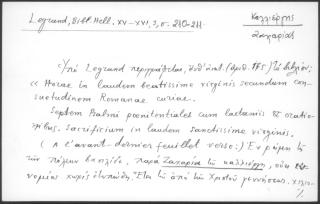 Legrand, Bibl. Hell. XV-XVI, 3, σ. 210-211.
Καλλιέργης
Ζαχαρίας
Ὑπὸ Legrand περιγράφεται, (ἀριθ. 185) τὸ βιβλίον:
"Horae in laudem beatissime virginis secundum con-
suetudinem Romanae curiae.
Septem Psalmi poenitentiales cum laetaniis et oratio-
nibus. Sacrificium in laudem sanctissime virginis.
(A l'avant-dernier feuillet verso:) Ἐν ῥώμῃ τῇ
τῶν πόλεων βασιλίδι. παρὰ Ζαχαρίᾳ τῷ καλλιέργῃ, σὺν
νομίας χωρὶς ἐτυπώθη. Ἔτει τῷ ἀπὸ τῆς Χριστοῦ γεννήσεως. χιλιο-
./.